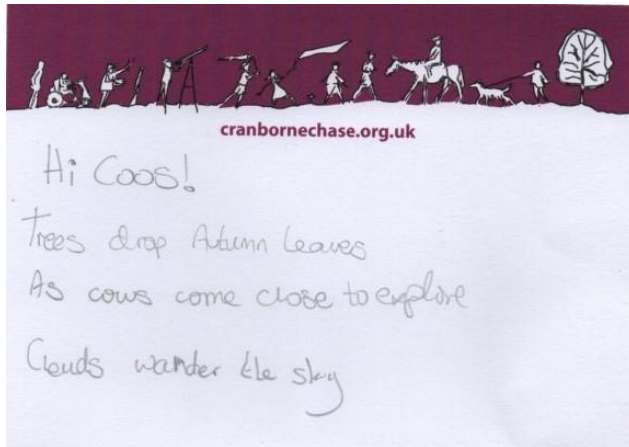 cranbornechase.org.uk
Hi Coos!
Trees drop Autumn Leaves
As cows come close to explore
Clouds wander the sky